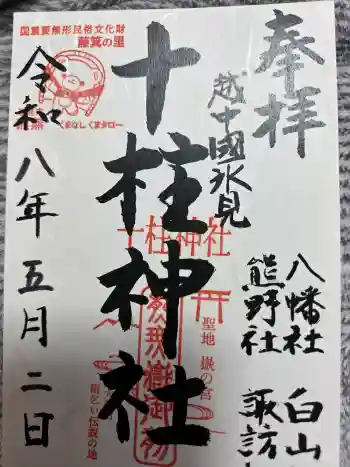 奉拝
越中國氷見
八幡社 白山
熊野社 諏訪
十柱神社
十柱神社
聖地 嶽の宮
雨乞い伝説の地
国重要無形民俗文化財
藤箕の里
くまなしくまタロー
令和八年五月二日